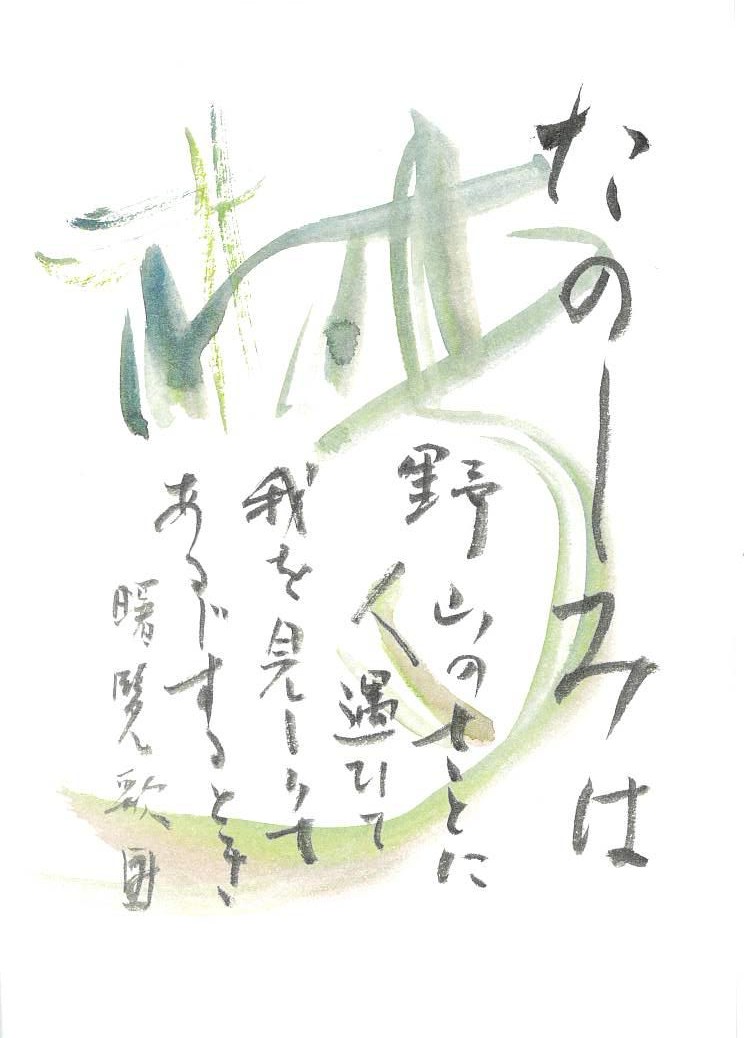 たのしみは
野山のさとに
人遇ひて
我を見しりて
あるじするとき
曙覧歌